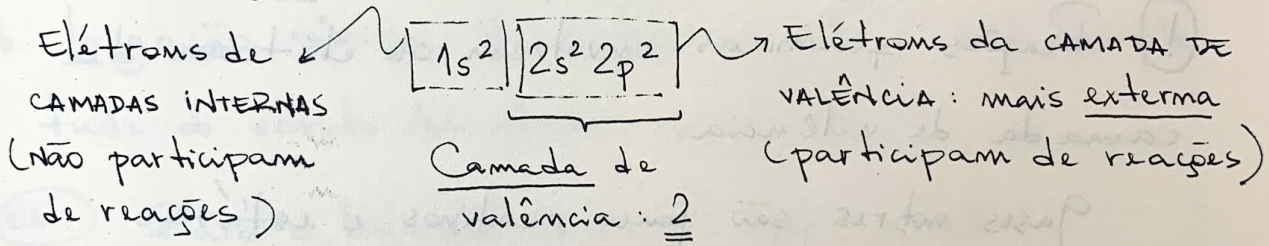 Elétrons de
CAMADAS INTERNAS
(Não participam
de reações)
1s² 2s² 2p²
Camada de
valência: 2
Elétrons da CAMADA DE
VALÊNCIA: mais externa
(participam de reações)